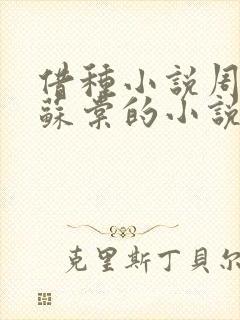 借種小說周
蘇棠的小說
克里斯丁貝尔